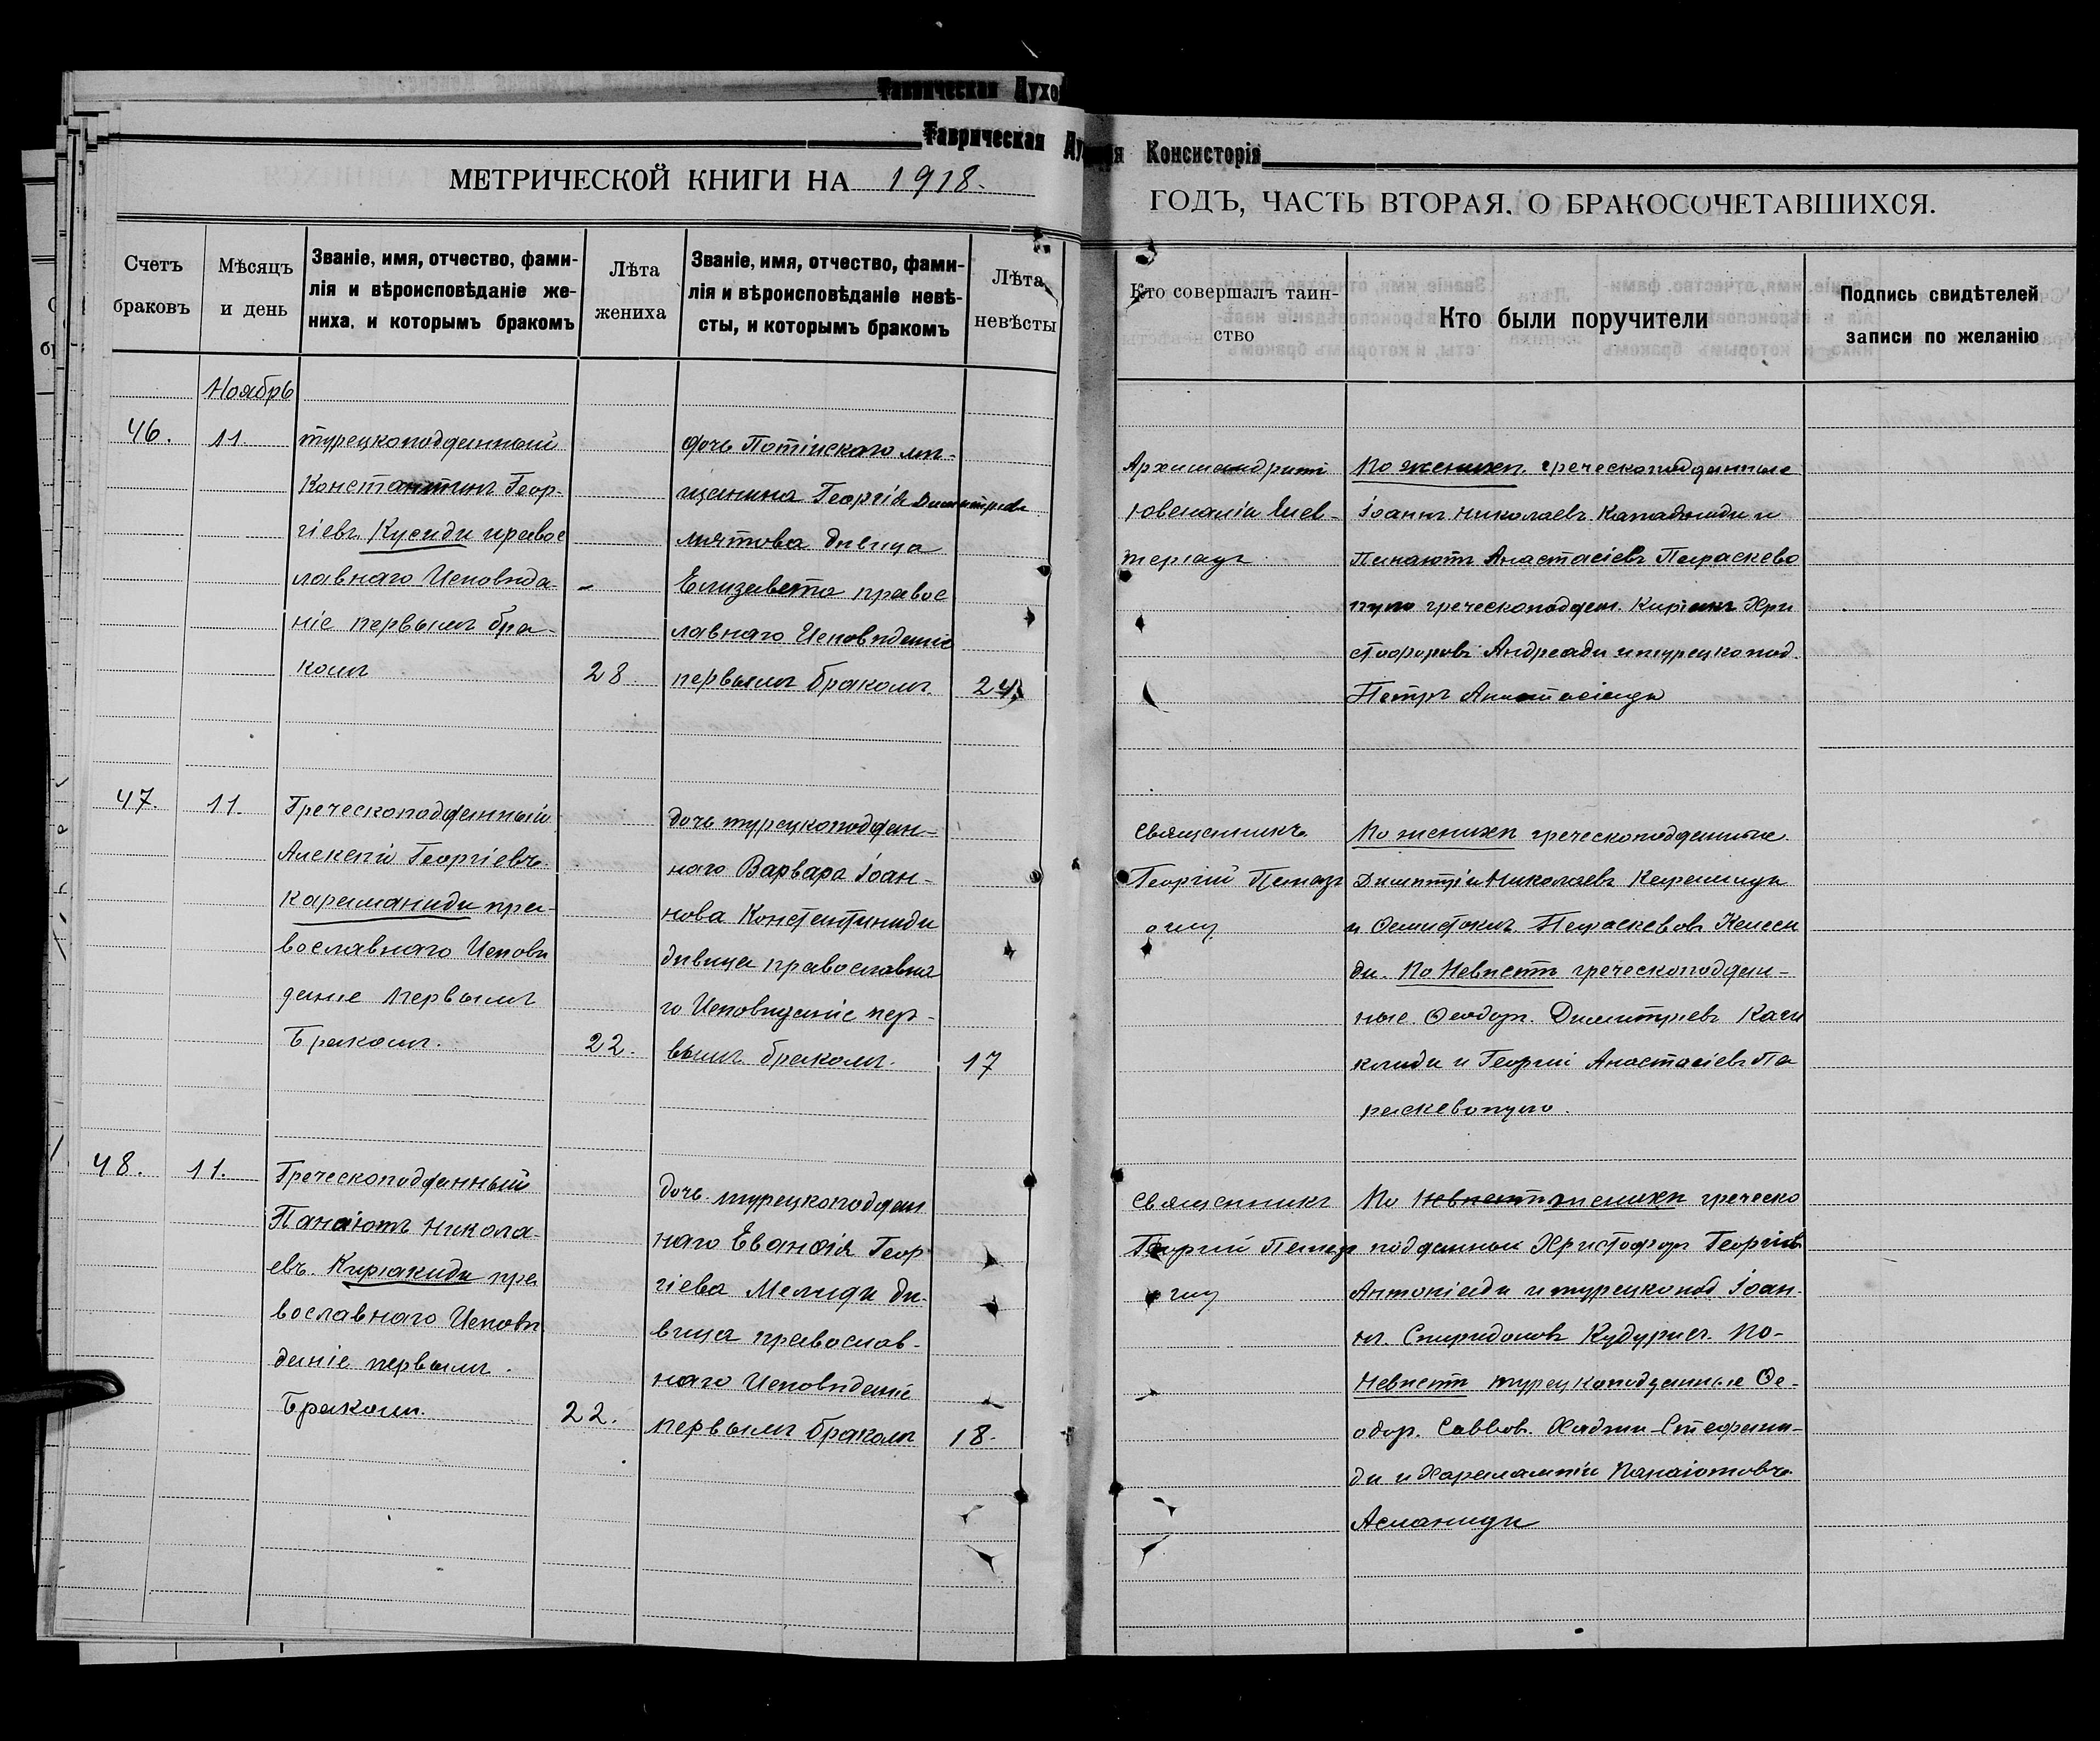 Таврическая Духовная Консисторія
МЕТРИЧЕСКОЙ КНИГИ НА 1918. ГОДЪ, ЧАСТЬ ВТОРАЯ, О БРАКОСОЧЕТАВШИХСЯ.
Счетъ браковъ
Мѣсяцъ и день
Званіе, имя, отчество, фами-
лія и вѣроисповѣданіе же-
ниха, и которымъ бракомъ
Лѣта жениха
Званіе, имя, отчество, фами-
лія и вѣроисповѣданіе невѣ-
сты, и которымъ бракомъ
Лѣта невѣсты
Кто совершалъ таин-
ство
Кто были поручители
Подпись свидѣтелей
записи по желанію
Ноябрь
46.
11
турецкоподданный
Константинъ Геор-
гіевъ Кусиди правос
лавнаго Исповѣда-
ніе первымъ бра-
комъ
28
дочь Потійскаго мѣ-
щанина Георгія
дѣвица
Елизавета правос
лавнаго Исповѣданіе
первымъ бракомъ.
24
Архимандритъ
Ювеналій
По женихѣ греческоподданные
Іоаннъ Николаевъ и
Панаіотъ Анастасіевъ Параскево
пуло греческоподдан. Киріакъ Хри
стофоровъ Андреади и турецкопод.
Петръ Анастасіади
47.
11.
Греческоподданный
Алексѣй Георгіевъ
Караманиди пра-
вославнаго Исповѣ
даніе первымъ
Бракомъ.
22.
дочь турецкоподдан-
наго Варвара Іоан-
нова Константиниди
дѣвица православна
го Исповѣданіе пер-
вымъ бракомъ.
17
Священникъ
Георгій
По женихѣ греческоподданные
Димитрій Николаевъ
и Ѳемистоклъ Параскевовъ
ди. По Невѣстѣ греческоподдан-
ные Ѳеодоръ Димитріевъ
и Георгій Анастасіевъ Па
раскевопуло.
48.
11.
Греческоподданный
Панаіотъ Никола-
евъ Киріакиди пра
вославнаго Исповѣ
даніе первымъ
Бракомъ.
22.
дочь турецкоподдан
наго Еванѳія Геор
гіева Мелиди дѣ-
вица православ-
наго Исповѣданіе
первымъ бракомъ
18.
Священникъ
Георгій
По Невѣстѣ женихѣ греческо
подданный Христофоръ Георгіевъ
Антоніади и турецкопод Іоан-
нъ Спиридоновъ По-
Невѣстѣ турецкоподданные Ѳе-
одор. Саввов. Хаджи-Стефани-
ди и Харалампій Панаіотовъ
Асланиди